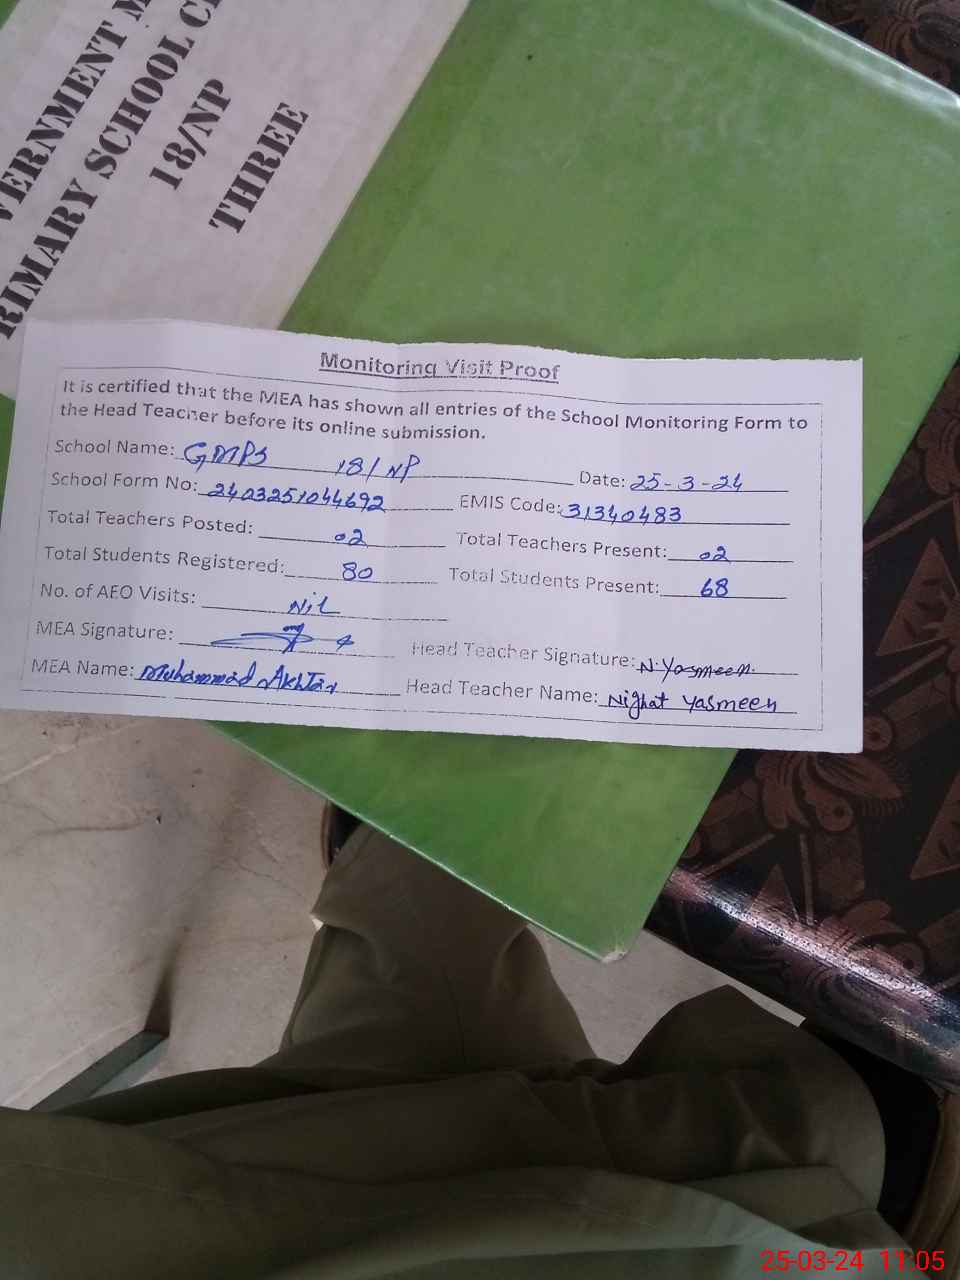 VERNMENT M
RIMARY SCHOOL C
18/NP
THREE
Monitoring Visit Proof
It is certified that the MEA has shown all entries of the School Monitoring Form to
the Head Teacher before its online submission.
School Name: GMPS 18/NP Date: 25-3-24
School Form No: 2403251044692 EMIS Code: 31340483
Total Teachers Posted: 02 Total Teachers Present: 02
Total Students Registered: 80 Total Students Present: 68
No. of AEO Visits: Nil
MEA Signature: Head Teacher Signature: N.Yasmeen.
MEA Name: Muhammad Akhtar Head Teacher Name: Nighat Yasmeen
25-03-24 11:05